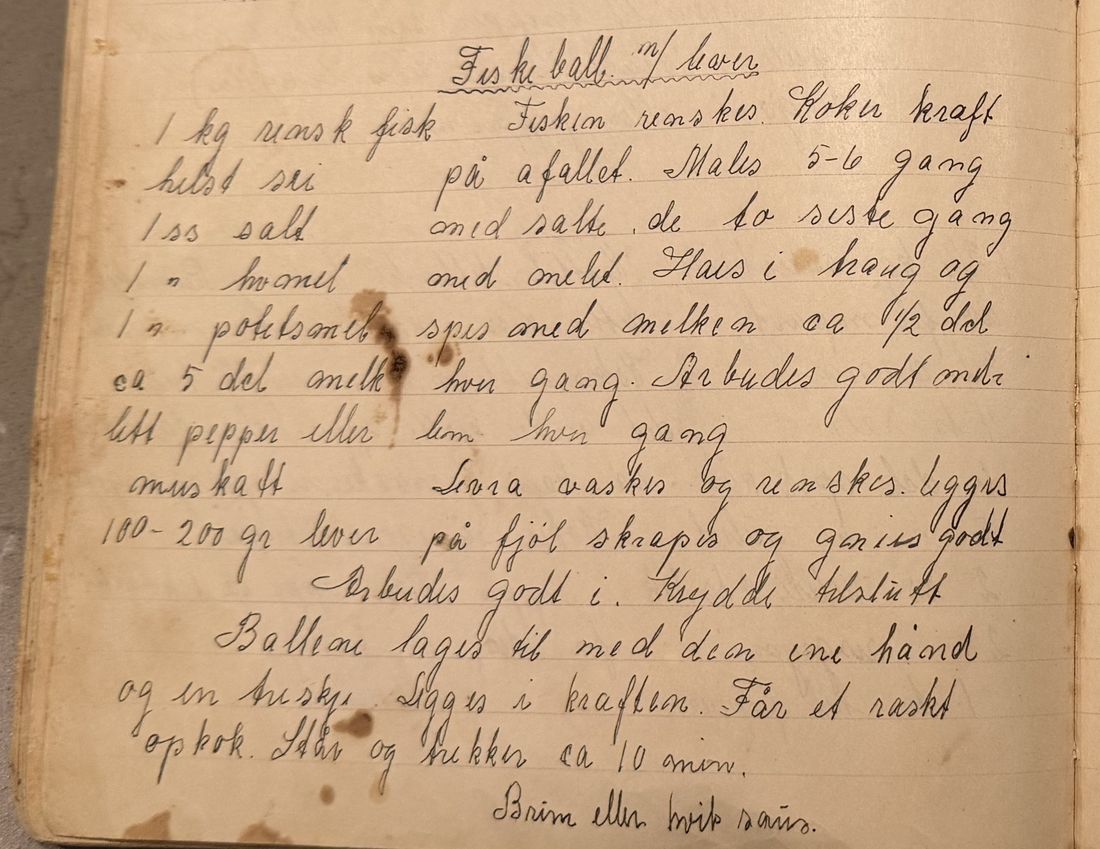 Fiskeball m/ lever
1 kg rensk fisk    Fisken renskes. Koker kraft
helst sei    på afallet. Males 5-6 gang
1 ss salt    med salte, de to siste gang
1 " hvmel    med melet. Haes i traug og
1 " potetsmel    spes med melken ca 1/2 del
ca 5 del melk    hver gang. Arbeides godt mel-
litt pepper eller    lom hver gang
muskatt    Levra vaskes og renskes. legges
100-200 gr lever    på fjøl skrapes og gnies godt
Arbeides godt i. Krydde tilslutt
Ballene lages til med den ene hånd
og en treskje Legges i kraften. Får et raskt
opkok. Står og trekker ca 10 min.
Brun eller hvit saus.